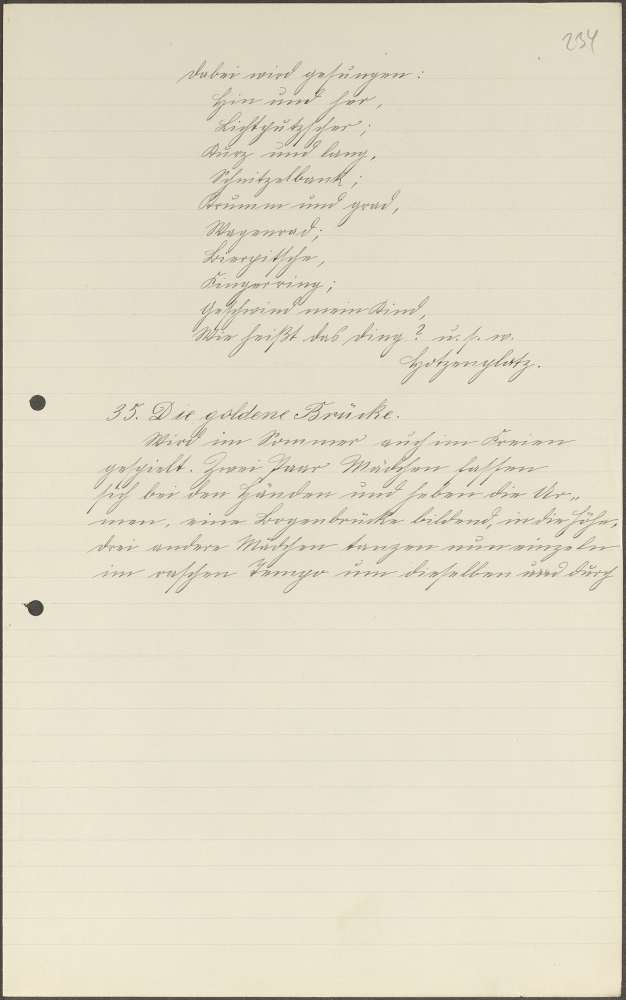 234
Dabei wird gesungen:
Hin und her,
Lichtputzscher;
Kurz und lang,
Schnitzelbank;
Krumm und grad,
Wagenrad;
Bierpitsche,
Fingerring;
Geschwind mein Kind,
Wie heißt das Ding? u. s. w.
Hotzenplotz.
35. Die goldene Brücke.
Wird im Sommer auch im Freien
gespielt. Zwei Paar Mädchen fassen
sich bei den Händen und heben die Ar„
men, eine Bogenbrücke bildend, in die Höhe,
drei andere Mädchen tanzen nun einzeln
im raschen Tempo um dieselben und durch